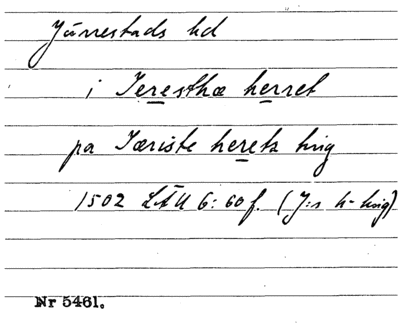 Järrestads hd
i Ieresthæ herret
pa Iæriste herets ting
1502 LÄU 6:60f. (J:s h- ting)
Nr 5461.